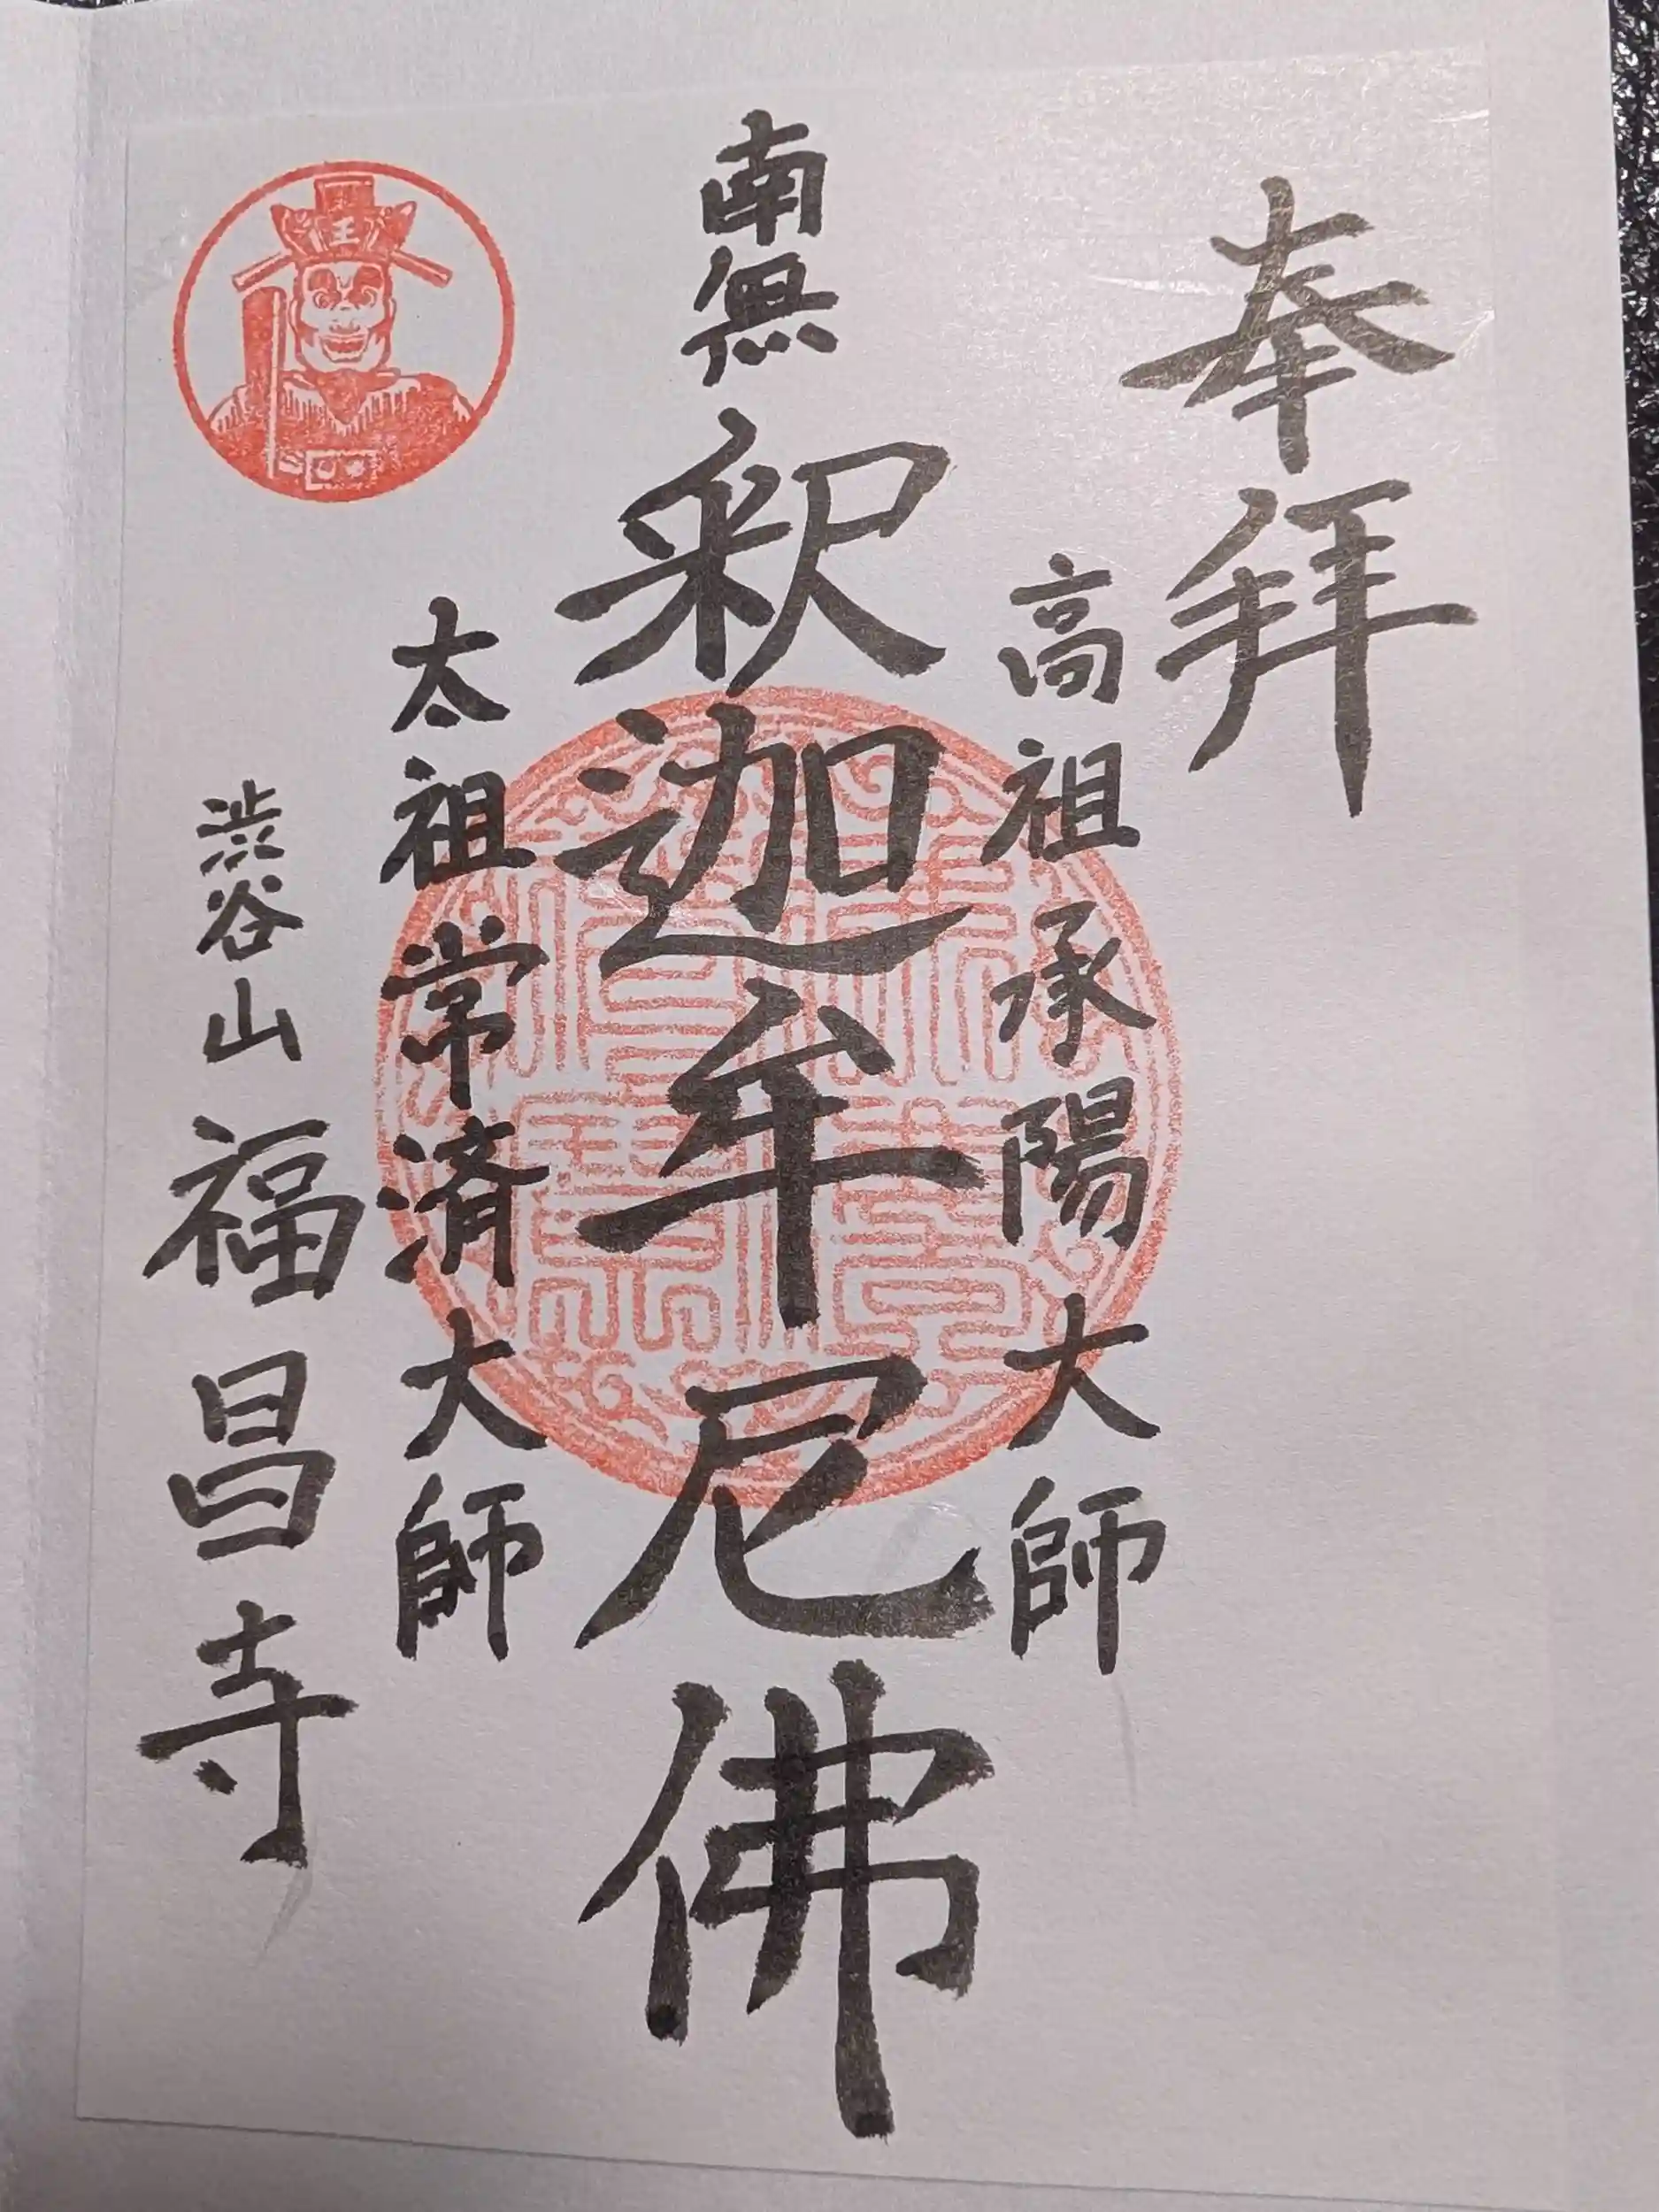 奉拝
高祖承陽大師
南無釈迦牟尼佛
太祖常済大師
渋谷山福昌寺
王